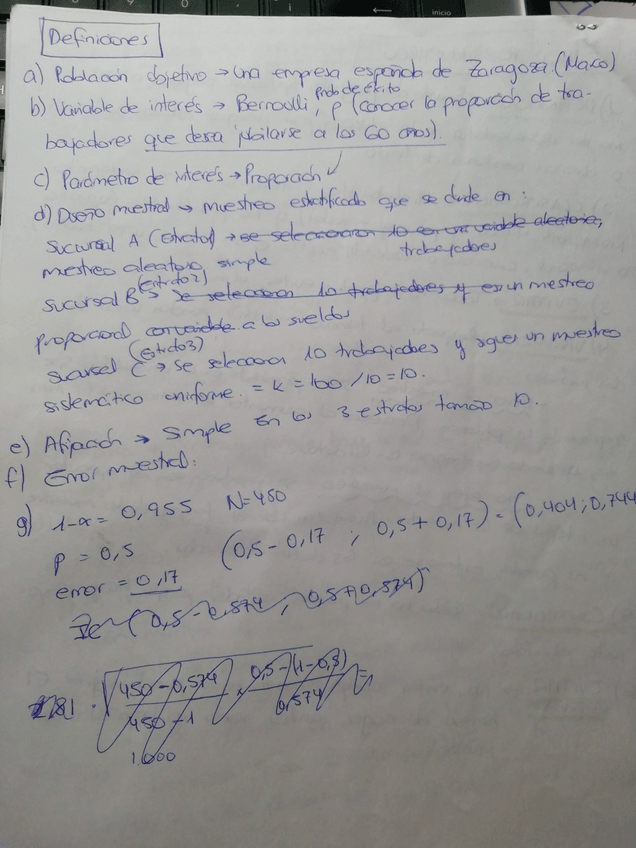 Definiciones
a) Población objetivo → Una empresa española de Zaragoza (Naco)
b) Variable de interés → Bernoulli, prob de éxito p (conocer la proporción de tra-
bajadores que desea jubilarse a los 60 años).
c) Parámetro de interés → Proporción
d) Diseño muestral → muestreo estratificado que se divide en:
sucursal A (Estrato1) → se seleccionaron 10 con una variable aleatoria, trabajadores
muestreo aleatorio simple
(estrato2)
sucursal B → se seleccionan 10 trabajadores y es un mestreo
proporcional con variable a los sueldos
(estrato3)
sucursal C → se seleccionan 10 trabajadores y sigues un muestreo
sistemático uniforme. = K = 100/10 = 10.
e) Afijación → Simple En los 3 estratos tamaño 10.
f) Error muestral:
g) 1-α = 0,955 N=450
p = 0,5 (0,5 - 0,17 ; 0,5 + 0,17) = (0,404; 0,744
error = 0,17
(0,5 - 0,574, 0,5 + 0,574)
450 - 0,574 0,5 - (1 - 0,5)
450 - 1 0,574 =
1.000